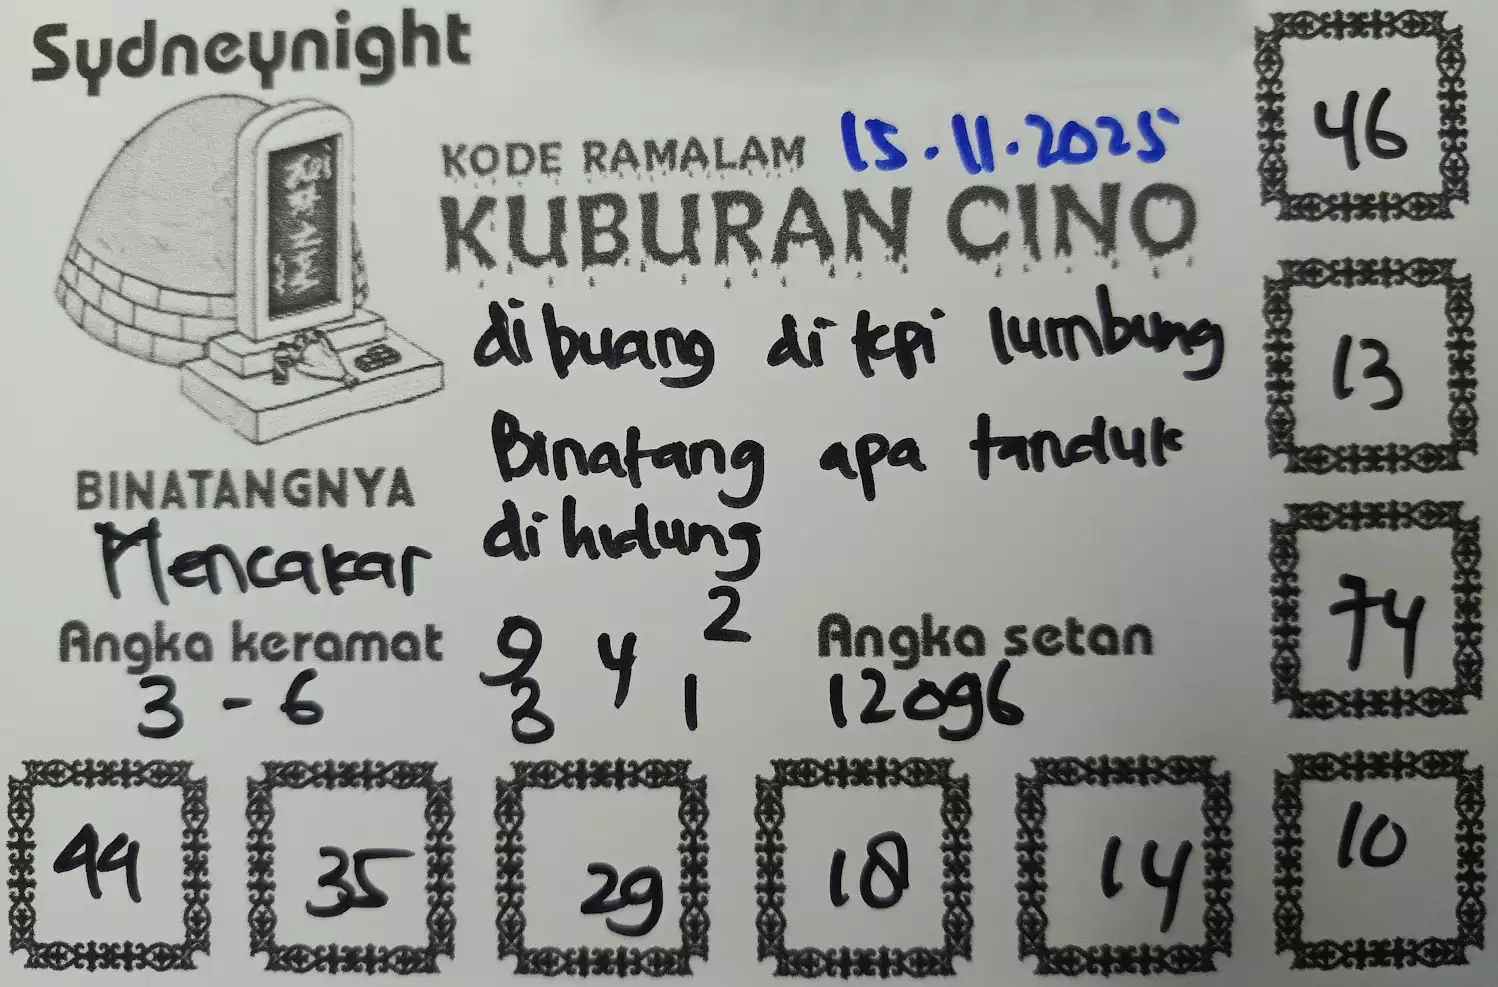 Sydneynight
KODE RAMALAM 15.11.2025
KUBURAN CINO
dibuang di tepi lumbung
Binatang apa tanduk
di hidung
BINATANGNYA
Mencakar
Angka keramat
3 - 6
9 4 2
8 1
Angka setan
12096
46
13
74
44
35
29
18
14
10